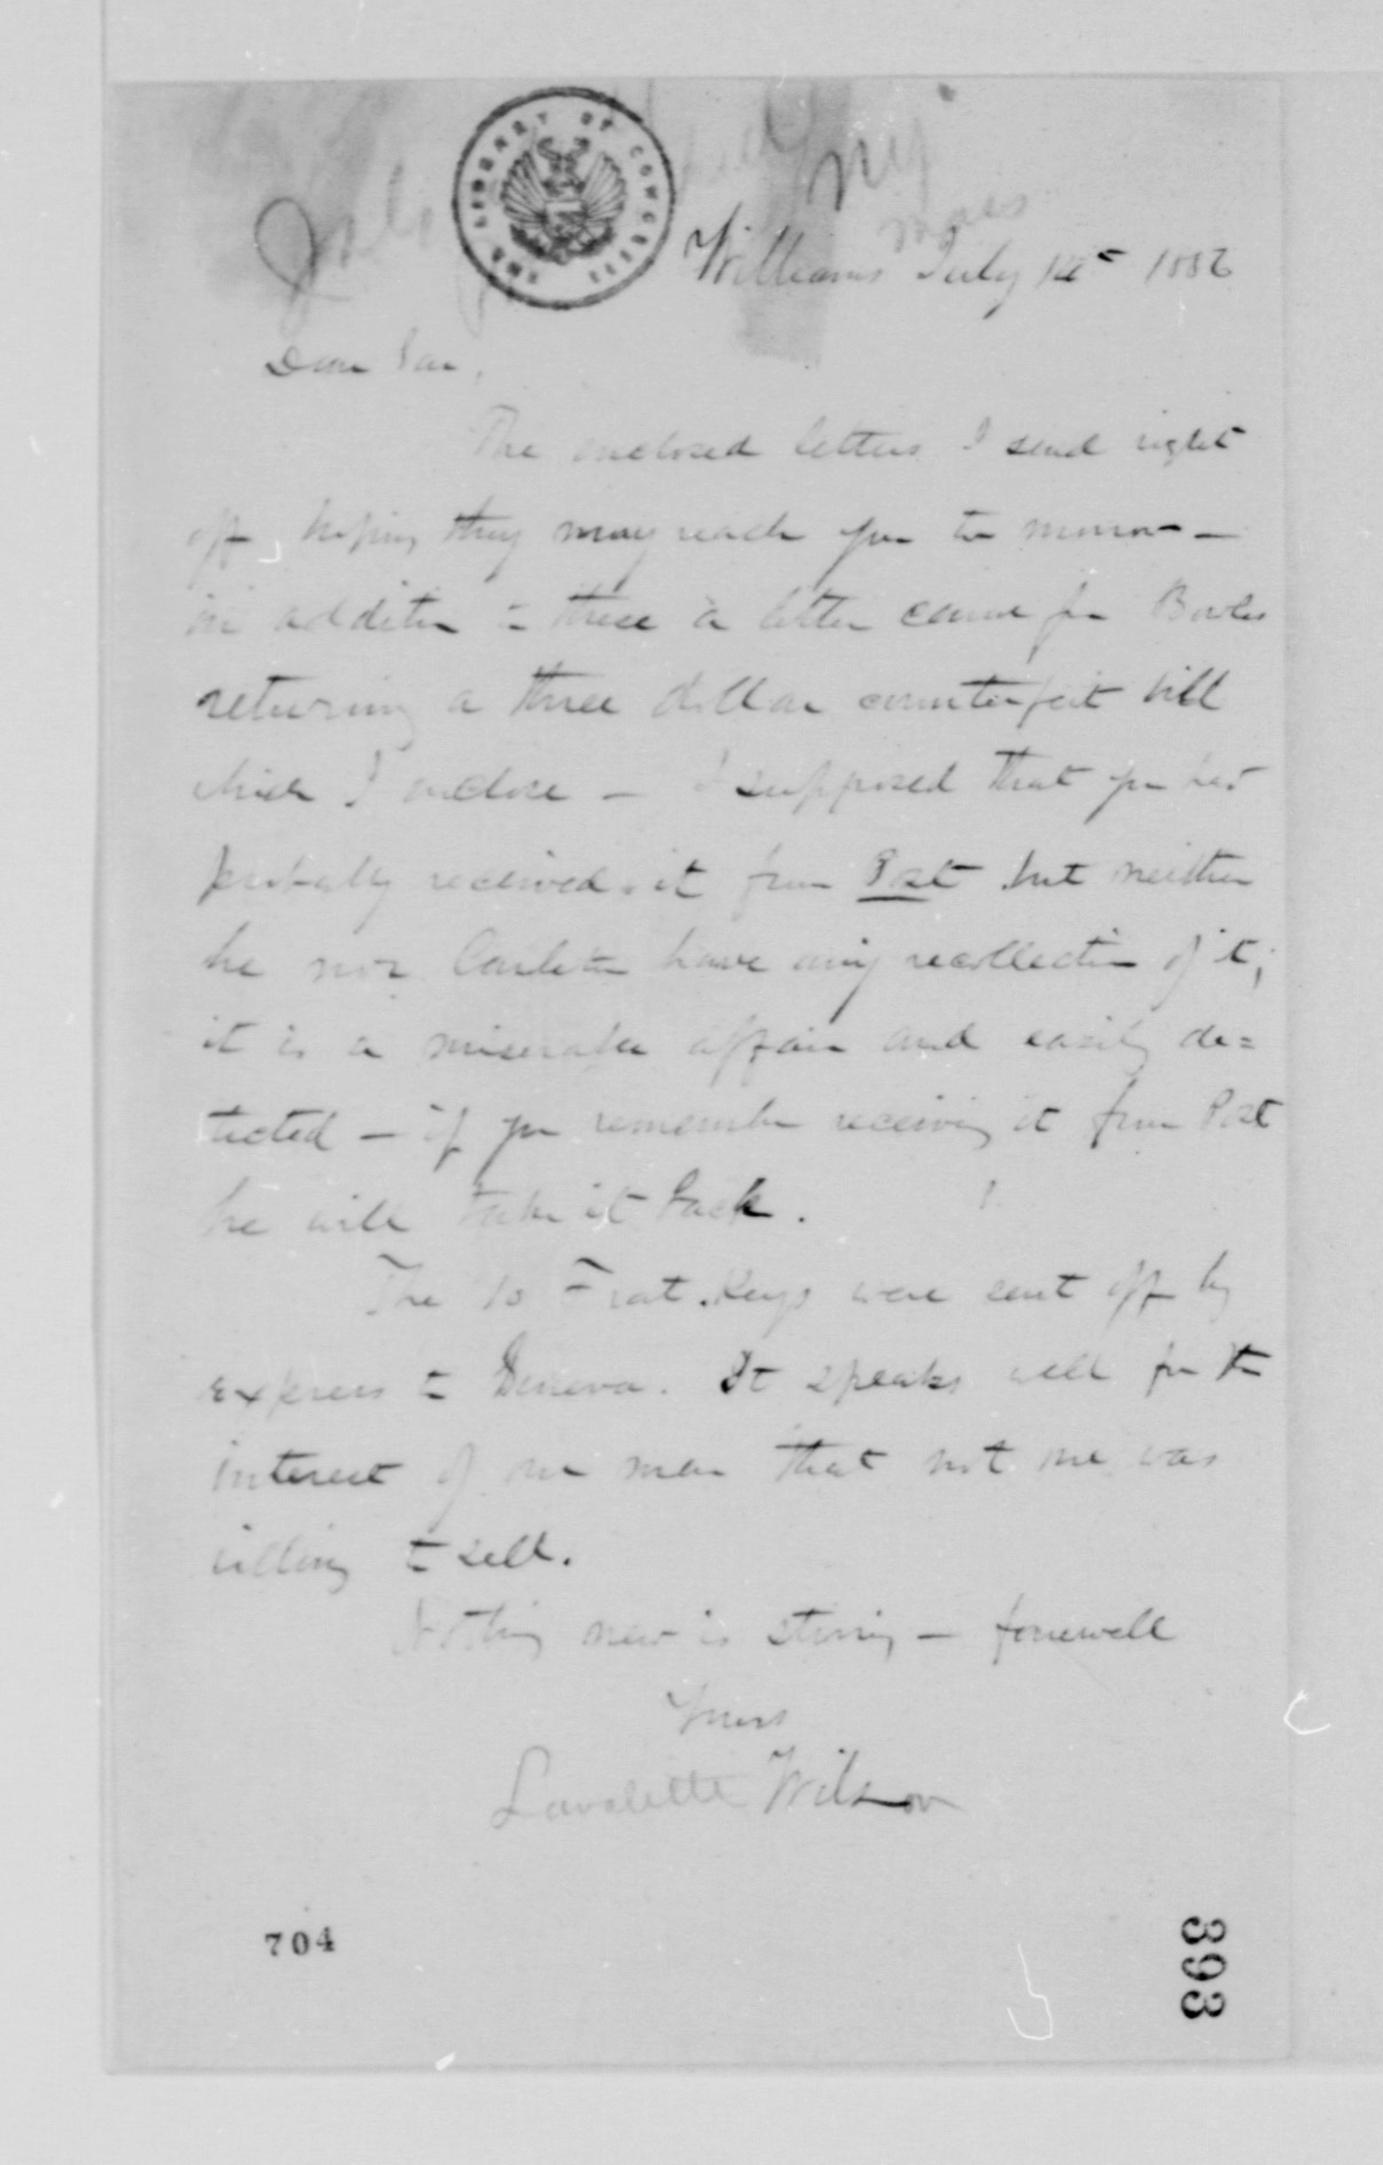 THE LIBRARY OF CONGRESS
Mass
Williams July 1856
Dear Gar,
The enclosed letters I send right
off, hoping they may reach you to morrow —
in addition to these a letter came for Bowles
returning a three dollar counterfeit bill
which I enclose — I supposed that you had
probably received it from Post but neither
he nor Carleton have any recollection of it;
it is a miserable affair and easily de=
tected — if you remember receiving it from Post
he will take it back.
The 10 Frat. Keys were sent off by
express to Geneva. It speaks well for the
interest of our men that not one was
willing to sell.
Nothing new is stirring — farewell
Yours
Lavalette Wilson
704
393